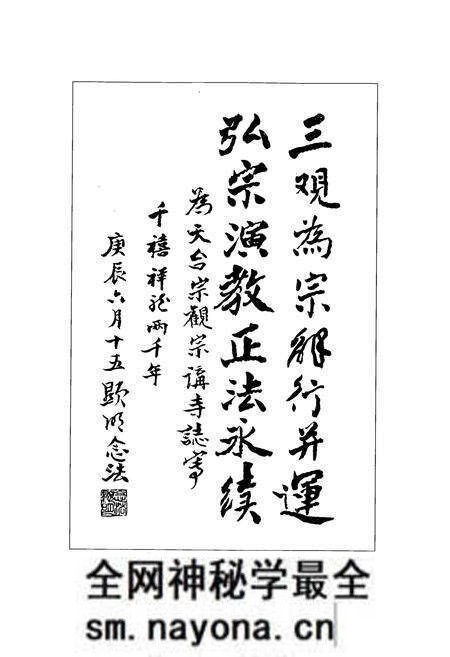 三观為宗解行并運
弘宗演教正法永续
為天台宗觀宗講寺誌寫
千禧祥龙兩千年
庚辰六月十五 顯明念法
全网神秘学最全
sm.nayona.cn